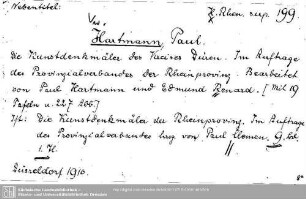 Nebentitel:
H. Rhen. sup. 199
Hartmann, Paul.
Die Kunstdenkmäler des Kreises Düren. Im Auftrage
des Provinzialverbandes der Rheinprovinz. Bearbeitet
von Paul Hartmann und Edmund Renard. [Mit 19
Tafeln u. 227 Abb.]
Die Kunstdenkmäler der Rheinprovinz. Im Auftrage
des Provinzialverbandes hrg. von Paul Clemen. 9. Bd.
1. H.
Düsseldorf 1910.
8°